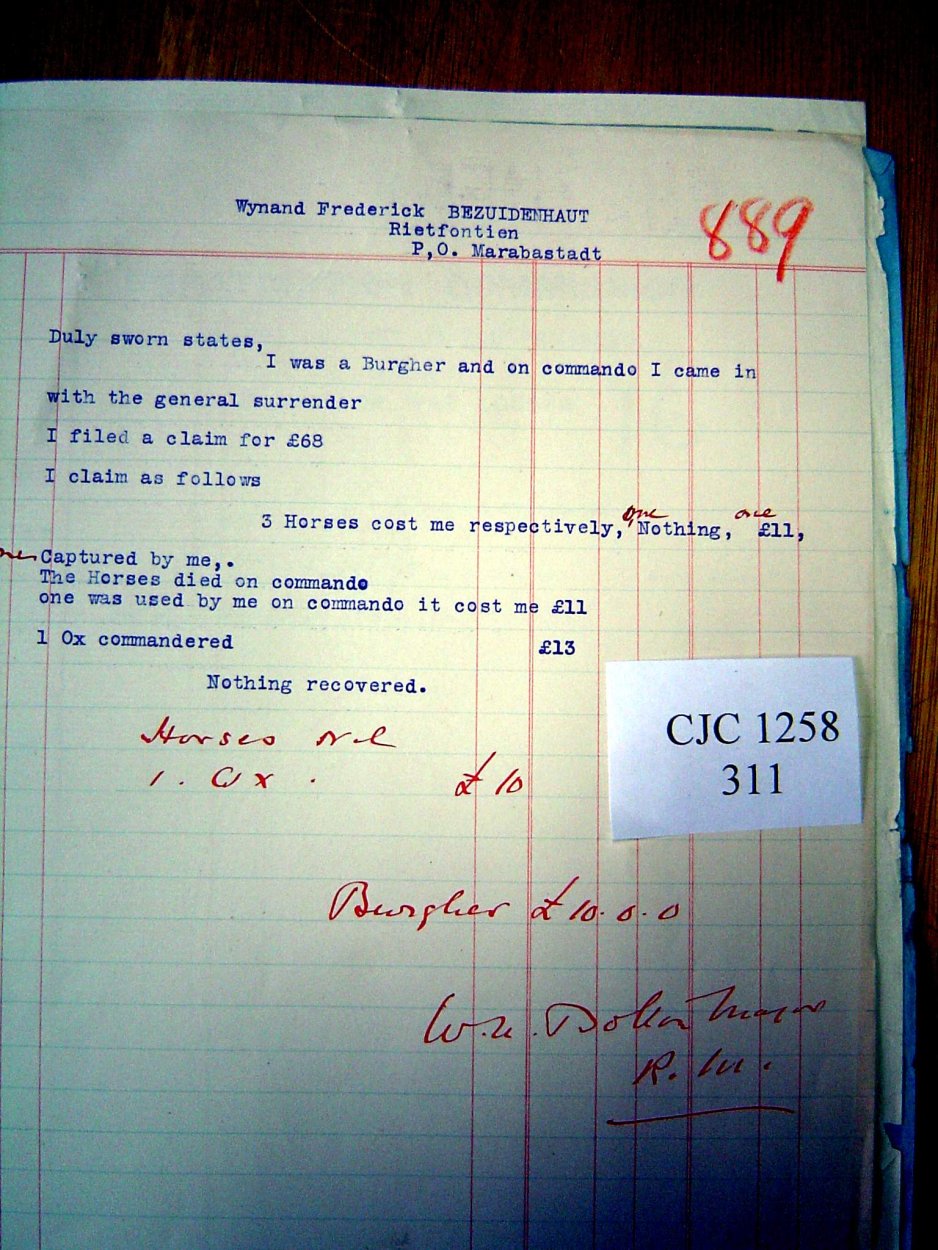 Wynand Frederick BEZUIDENHAUT
Rietfontien
P,O. Marabastadt
889
Duly sworn states,
I was a Burgher and on commando I came in
with the general surrender
I filed a claim for £68
I claim as follows
one one
3 Horses cost me respectively, Nothing, £11,
Captured by me,.
The Horses died on commando
one was used by me on commando it cost me £11
1 Ox commandered £13
Nothing recovered.
Horses Nil
1. Ox. £10
CJC 1258
311
Burgher £10.0.0
W.H. Major
R.M.